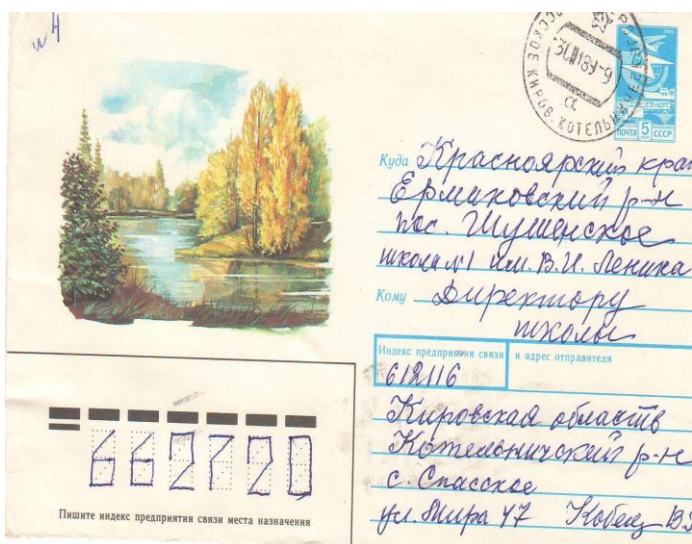 N 4
ПОЧТА 5 СССР
Куда Красноярский край
Ермаковский р-н
пос. Шушенское
школа N1 им. В.И. Ленина
Кому Директору
школы
Индекс предприятия связи и адрес отправителя
612116
Кировская область
Котельничский р-н
с. Спасское
ул. Мира 47 Кобелц В.
662720
Пишите индекс предприятия связи места назначения